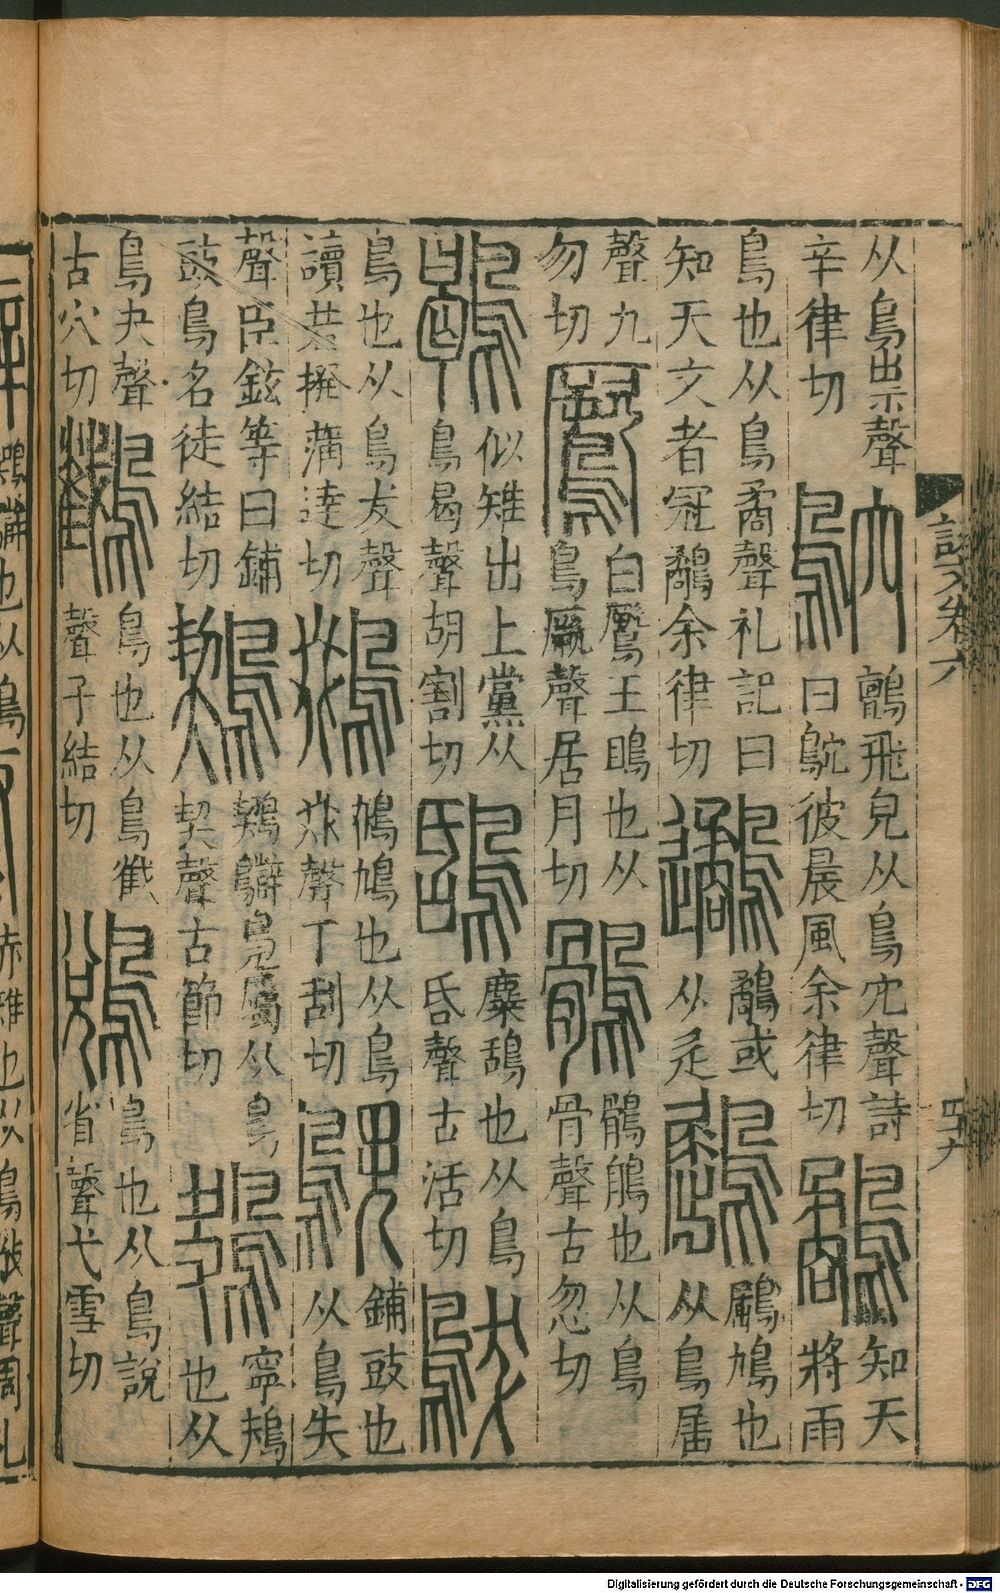 从鳥出示聲辛律切鴥鸇飛皃从鳥穴聲詩曰鴥彼晨風余律切鷸知天將雨
鳥也从鳥矞聲礼記曰知天文者冠鷸余律切鷸或从辵鶌鶌鳩也从鳥屈
聲九勿切鷢白鷢王鴡也从鳥厥聲居月切鶻鶻鵃也从鳥骨聲古忽切
鶡似雉出上黨从鳥曷聲胡割切鴰麋鴰也从鳥昏聲古活切䳊
鳥也从鳥犮聲讀若撥蒲達切鵽鵽鳩也从鳥叕聲丁刮切鴩鋪豉也从鳥失
聲臣鉉等曰鋪豉鳥名徒結切䳶䳶鷿鳧屬从鳥契聲古節切鴂寧鴂也从
鳥夬聲古穴切鳥也从鳥聲子結切鳥也从鳥說省聲弋雪切
說文卷六
四十九
Digitalisierung gefördert durch die Deutsche Forschungsgemeinschaft - DFG